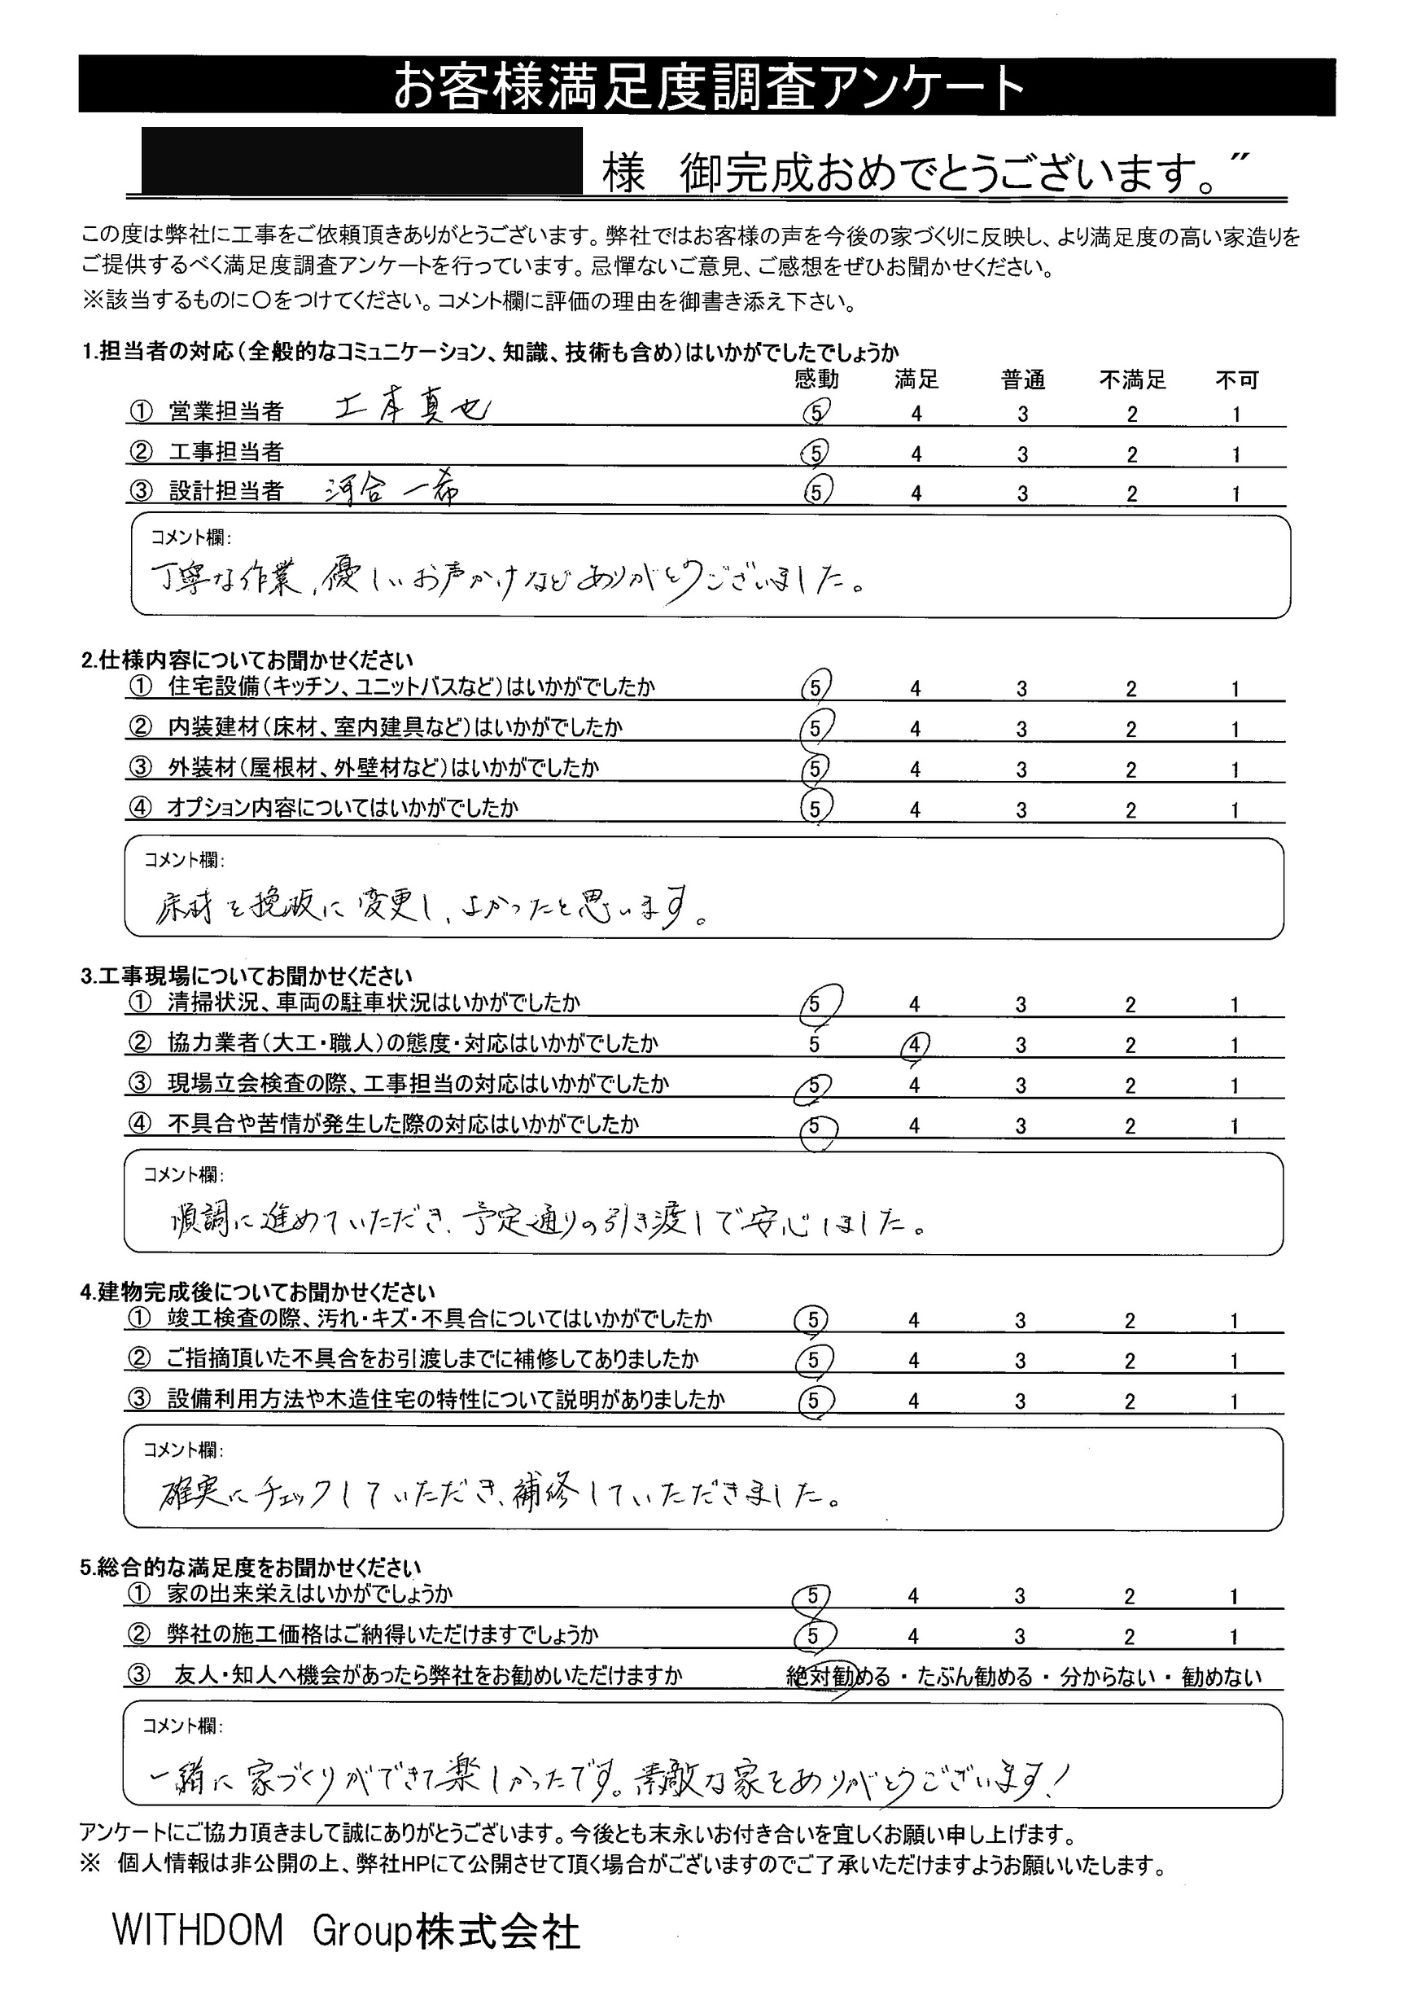 お客様満足度調査アンケート
様 御完成おめでとうございます。”
この度は弊社に工事をご依頼頂きありがとうございます。弊社ではお客様の声を今後の家づくりに反映し、より満足度の高い家造りを
ご提供するべく満足度調査アンケートを行っています。忌憚ないご意見、ご感想をぜひお聞かせください。
※該当するものに〇をつけてください。コメント欄に評価の理由を御書き添え下さい。
1.担当者の対応(全般的なコミュニケーション、知識、技術も含め)はいかがでしたでしょうか
感動 満足 普通 不満足 不可
① 営業担当者 工本真也 5 4 3 2 1
② 工事担当者 5 4 3 2 1
③ 設計担当者 河合一希 5 4 3 2 1
コメント欄:
丁寧な作業、優しいお声かけなどありがとうございました。
2.仕様内容についてお聞かせください
① 住宅設備(キッチン、ユニットバスなど)はいかがでしたか 5 4 3 2 1
② 内装建材(床材、室内建具など)はいかがでしたか 5 4 3 2 1
③ 外装材(屋根材、外壁材など)はいかがでしたか 5 4 3 2 1
④ オプション内容についてはいかがでしたか 5 4 3 2 1
コメント欄:
床材を挽板に変更し、よかったと思います。
3.工事現場についてお聞かせください
① 清掃状況、車両の駐車状況はいかがでしたか 5 4 3 2 1
② 協力業者(大工・職人)の態度・対応はいかがでしたか 5 4 3 2 1
③ 現場立会検査の際、工事担当の対応はいかがでしたか 5 4 3 2 1
④ 不具合や苦情が発生した際の対応はいかがでしたか 5 4 3 2 1
コメント欄:
順調に進めていただき、予定通りの引き渡しで安心しました。
4.建物完成後についてお聞かせください
① 竣工検査の際、汚れ・キズ・不具合についてはいかがでしたか 5 4 3 2 1
② ご指摘頂いた不具合をお引渡しまでに補修してありましたか 5 4 3 2 1
③ 設備利用方法や木造住宅の特性について説明がありましたか 5 4 3 2 1
コメント欄:
確実にチェックしていただき、補修していただきました。
5.総合的な満足度をお聞かせください
① 家の出来栄えはいかがでしょうか 5 4 3 2 1
② 弊社の施工価格はご納得いただけますでしょうか 5 4 3 2 1
③ 友人・知人へ機会があったら弊社をお勧めいただけますか 絶対勧める・たぶん勧める・分からない・勧めない
コメント欄:
一緒に家づくりができて楽しかったです。素敵な家をありがとうございます!
アンケートにご協力頂きまして誠にありがとうございます。今後とも末永いお付き合いを宜しくお願い申し上げます。
※ 個人情報は非公開の上、弊社HPにて公開させて頂く場合がございますのでご了承いただけますようお願いいたします。
WITHDOM Group株式会社